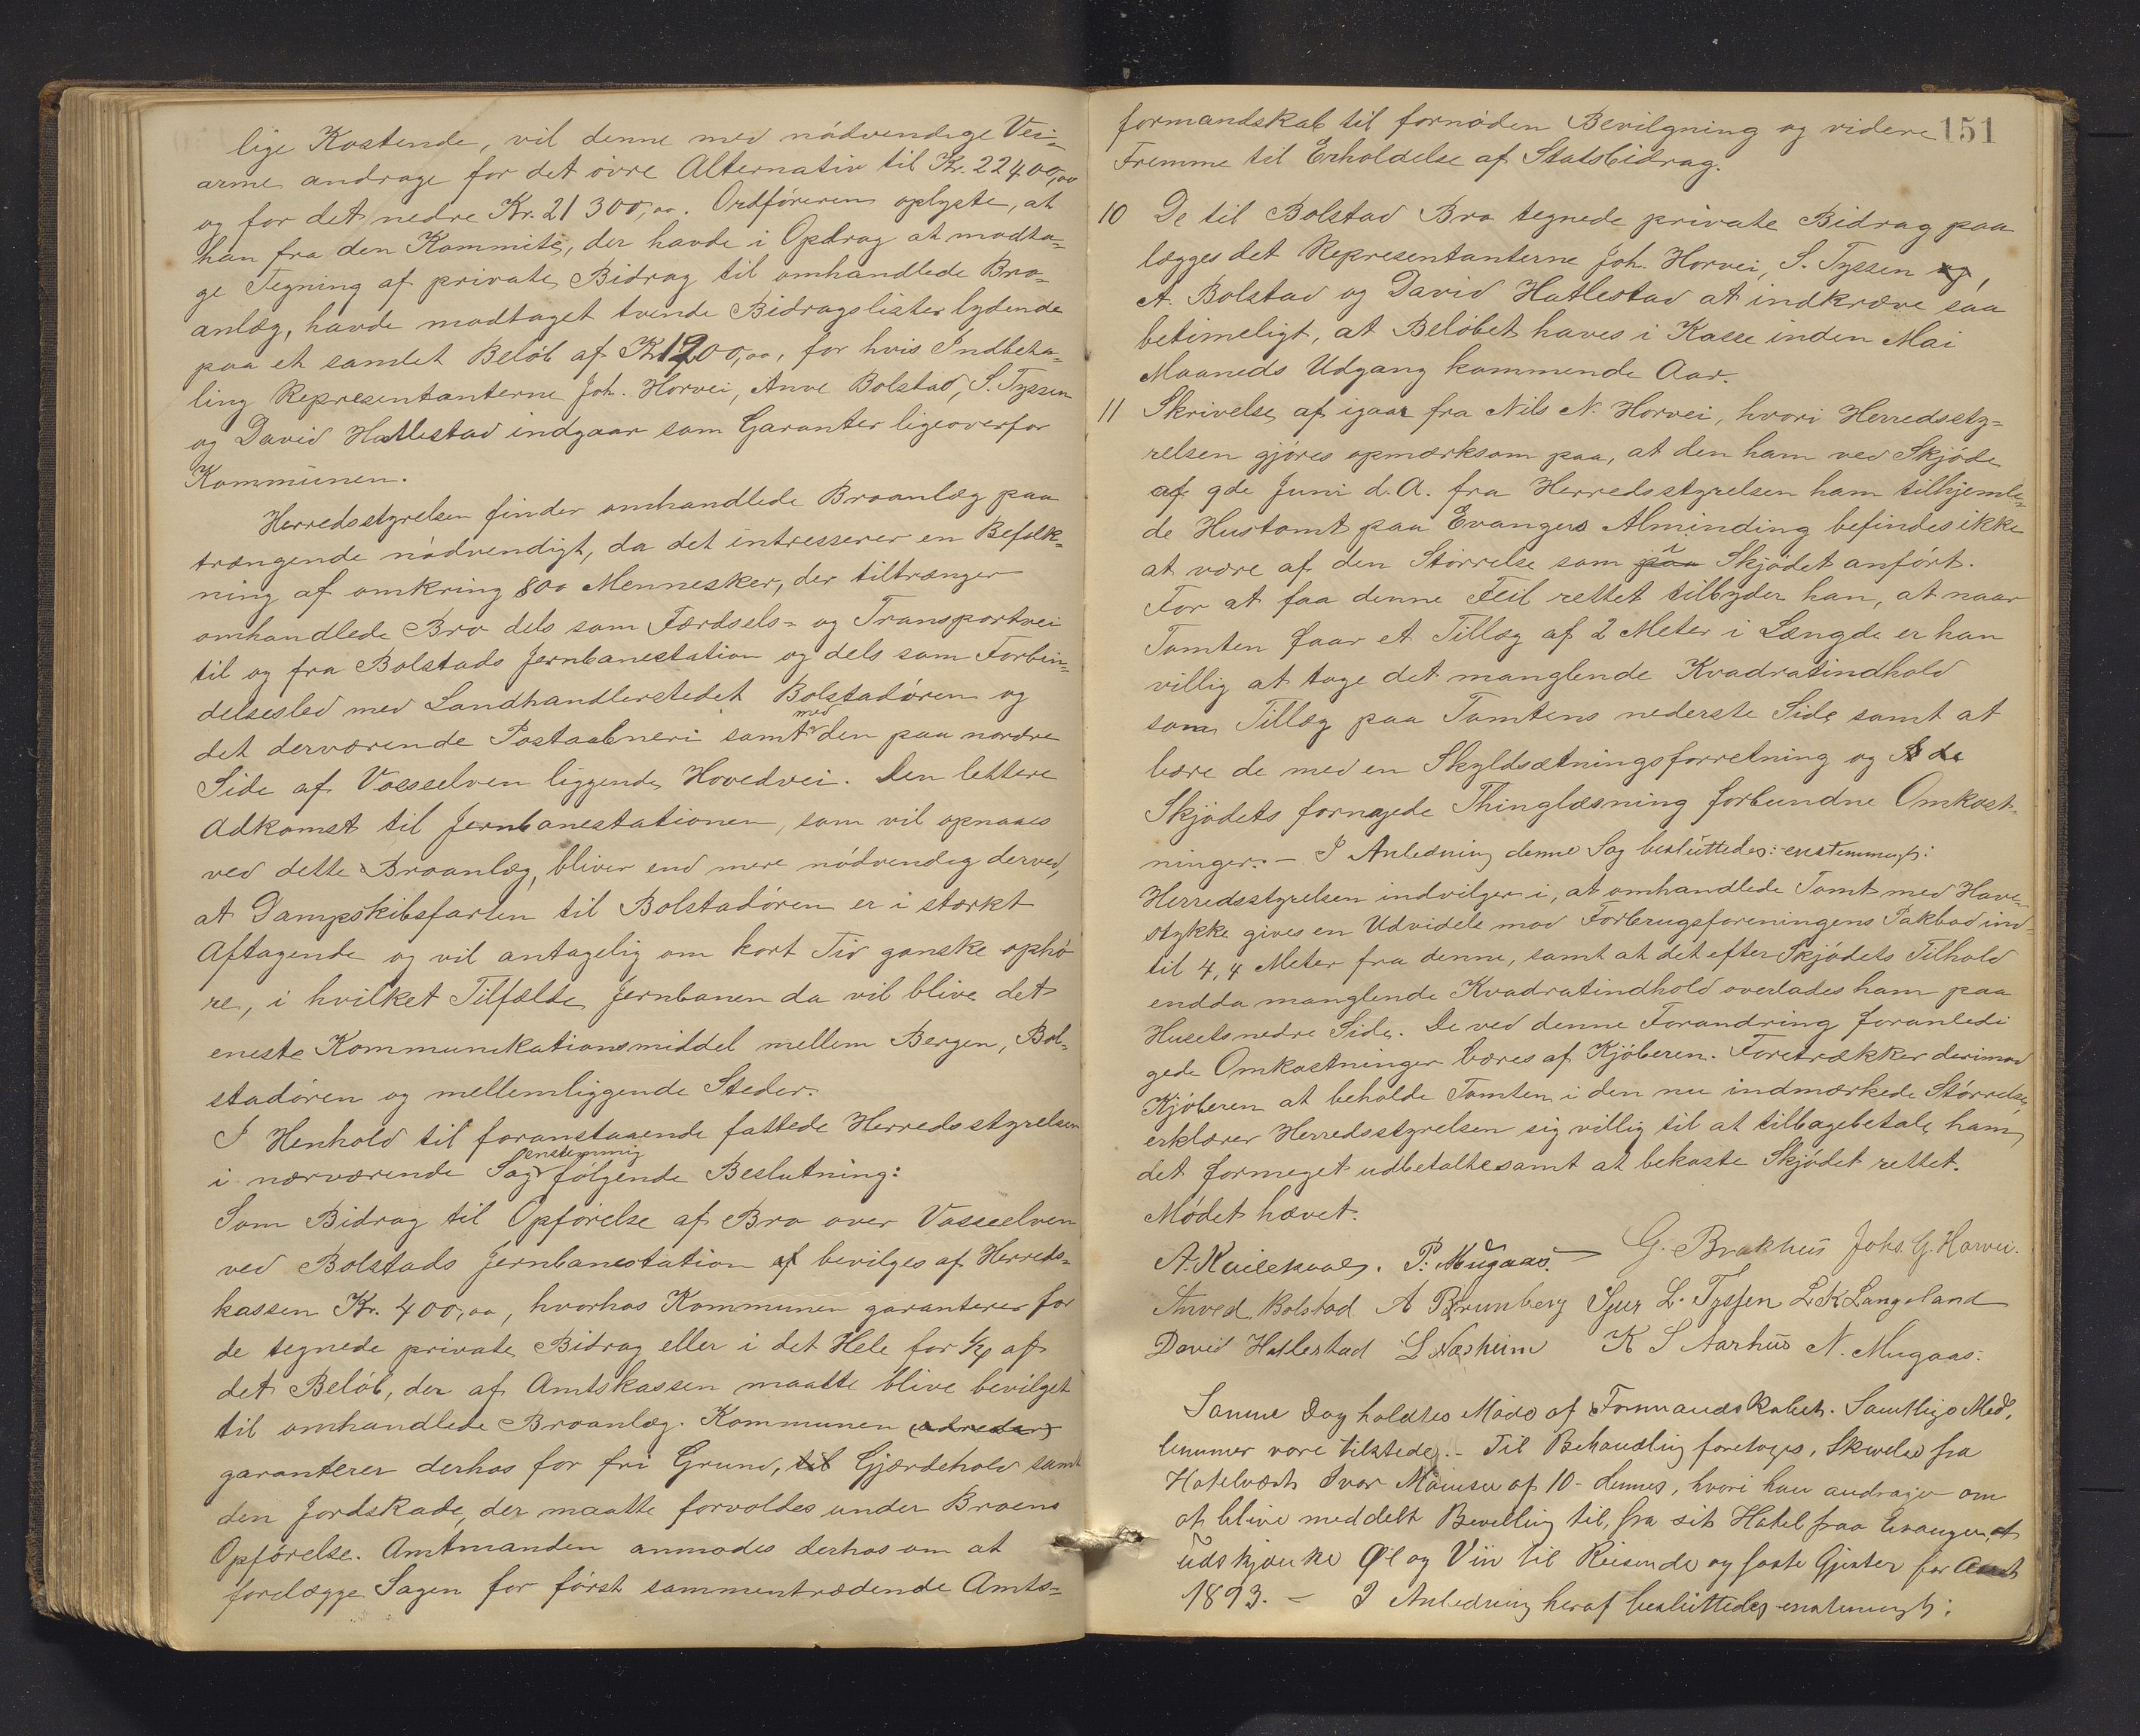 lige Kostende, vil denne med nödvendige Vei-
arme andrage for det övre Alternativ til Kr. 22400,00
og for det nedre Kr. 21300,00. Ordföreren oplyste, at
han fra den Kommite, der havde i Opdrag at modta-
ge Tegning af private Bidrag til omhandlede Bro-
anlæg, havde modtaget tvende Bidragslister lydende
paa et samlet Belöb af Kr 1200,00, for hvis Indbeta-
ling Repræsentanterne Joh. Horvei, Anve Bolstad, S. Tyssen
og David Hatlestad indgaar som Garanter ligeoverfor
Kommunen.
Herredsstyrelsen finder omhandlede Broanlæg paa
trængende nödvendigt, da det intresserer en Befolk-
ning af omkring 800 Mennesker, der tiltrænger
omhandlede Bro dels som Færdsels- og Transportvei
til og fra Bolstads Jernbanestation og dels som Forbin-
delsesled med Landhandlerstedet Bolstadören og
det derværende Postaabneri samt med den paa nordre
Side af Vosselven liggende Hovedvei. Den lettere
Adkomst til Jernbanestationen, som vil opnaaes
ved dette Broanlæg, bliver end mere nödvendig derved,
at Dampskibsfarten til Bolstadören er i stærkt
Aftagende og vil antagelig om kort Tid ganske ophö
re, i hvilket Tilfælde Jernbanen da vil blive det
eneste Kommunikationsmiddel mellem Bergen, Bol-
stadören og mellemliggende Steder.
I Henhold til foranstaaende fattede Herredsstyrelsen
i nærværende Sag enstemmig fölgende Beslutning:
Som Bidrag til Opförelse af Bro over Vosseelven
ved Bolstads Jernbanestation af bevilges af Herreds-
kassen Kr. 400,00, hvorhos Kommunen garanterer for
de tegnede private Bidrag eller i det Hele for 1/4 af
det Belöb, der af Amtskassen maatte blive bevilget
til omhandlede Broanlæg. Kommunen (udreder)
garanterer derhos for fri Grund, til Gjærdehold samt
den Jordskade, der maatte forvoldes under Broens
Opförelse. Amtmanden anmodes derhos om at
forelægge Sagen for först sammentrædende Amts-
151
formandskab til fornöden Bevilgning og videre
Fremme til Erholdelse af Statsbidrag.
10 De til Bolstad Bro tegnede private Bidrag paa
lægges det Repræsentanterne Joh. Horvei, S. Tyssen og,
A. Bolstad og David Hatlestad at indkræve saa
betimeligt, at Belöbet haves i Kasse inden Mai
Maaneds Udgang kommende Aar.
11 Skrivelse af igaar fra Nils N. Horvei, hvori Herredssty-
relsen gjöres opmærksom paa, at den ham ved Skjöde
af 9de Juni d.A. fra Herredsstyrelsen ham tilhjemle-
de Hustomt paa Evangers Alminding befindes ikke
at være af den Störrelse som paa i Skjödet anfört.
For at faa denne Feil rettet tilbyder han, at naar
Tomten faar et Tillæg af 2 Meter i Længde er han
villig at tage det manglende Kvadratindhold
som Tillæg paa Tomtens nederste Side samt at
bære de med en Skyldsætningsforretning og de
Skjödets fornyede Thinglæsning forbundne Omkost-
ninger. – I Anledning denne Sag besluttedes: enstemmigt:
Herredsstyrelsen indvilger i, at omhandlede Tomt med Have-
stykke gives en Udvidele mod Forbrugsforeningens Pakbod ind-
til 4,4 Meter fra denne, samt at det efter Skjödets Tilhold
endda manglende Kvadratindhold overlades ham paa
Husets nedre Side. De ved denne Forandring foranledi
gede Omkostninger bæres af Kjöberen. Foretrækker derimod
Kjöberen at beholde Tomten i den nu indmærkede Störrelse,
erklærer Herredsstyrelsen sig villig til at tilbagebetale ham
det formeget udbetalte samt at bekoste Skjödet rettet.
Mödet hævet.
P. Mugaas. G. Brakhus Johs. G. Horvei.
Bolstad A Brunberg Sjur L. Tyssen L K Langeland
David Hatlestad L Næsheim K S Aarhus N. Mugaas.
Samme Dag holdtes Möde af Formandskabet. Samtlige Med,
lemmer vare tilstede. – Til Behandling foretoges, Skrivelse fra
Hotelvært Ivar af 10- dennes, hvori han andrager om
at blive meddelt Bevilling til, fra sit Hotel paa Evanger, at
udskjænke Øl og Viin til Reisende og faste Gjester for Aaret
1893. – I Anledning heraf besluttedes enstemmigt: